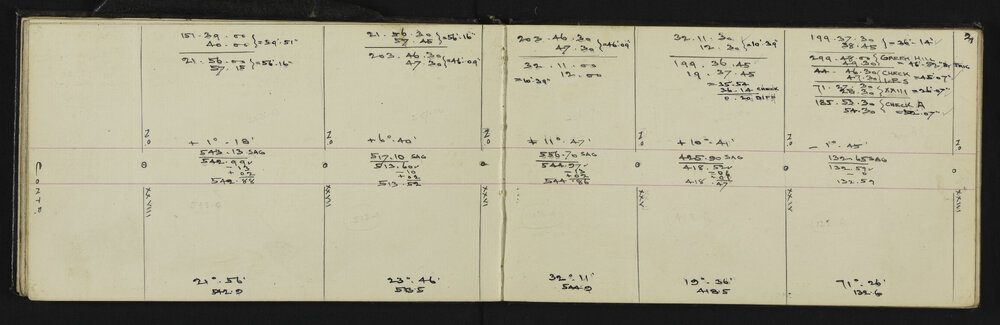 151.39.00
40.00 } = 39'.51"
21.56.00 } = 56'.16"
57.15
+ 1° - 18'
543.13 SAG
542.99
- 13
+ 02
542.88
XXVIII
CONTD.
21°.56'
542.9
21.56.30
57.45 } = 56'.16"
203.46.30
47.30 } = 46'.09"
+ 6°.40'
517.10 SAG
513.60
- 10
+ 02
513.52
23°.46'
513.5
203.46.30
47.30 } = 46'.09"
32.11.00
12.00
= 10'.39"
+ 11°.47'
556.70 SAG
544.97
- 13
+ 02
544.86
XXVI
32°.11'
544.9
32.11.30
12.30 } = 10'.39"
199.36.45
19.37.45
= 35.54
36.14 CHECK
0.20 DIFF
+ 10°.41'
425.90 SAG
418.53
- 06
418.47
XXV
19°.36'
418.5
199.37.30
38.45 } = 36'.14"
299.48.00 } GAREH HILL
44.46.30 } CHECK
47.30 } L.P.S = 45'.07"
71.27.30
28.30 } XXIII = 26'.07"
185.53.30 } CHECK A
54.30
- 1°.45'
132.65 SAG
132.59
- 0
132.59
XXIV
XXIII
71°.26'
132.6